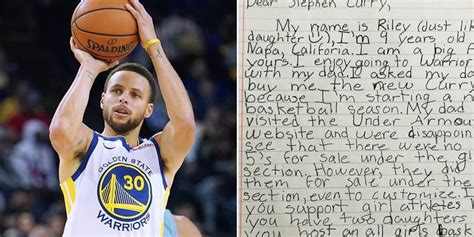 SPALDING
GOLDEN STATE
30
WARRIORS
Dear Stephen Curry,
My name is Riley (just like
daughter), I'm 9 years old
Napa, California. I am a big f
yours. I enjoy going to Warrior
with my dad. I asked my d
buy me the new Curry
because I'm starting a
basketball season. My dad
visited the Under Armou
website and were disappoin
see that there were no
5's for sale under the gi
section. However, they did
them for sale under the
section, even to customize.
you support girl athletes
you have two daughters
you host an all girls bask